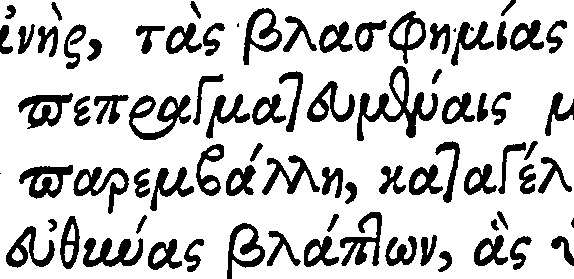 ἀνὴρ, τὰς βλασφημίας
πεπραγματευμέναις μ
παρεμβάλλη, καταγέλ
βλάπτων, ἃς